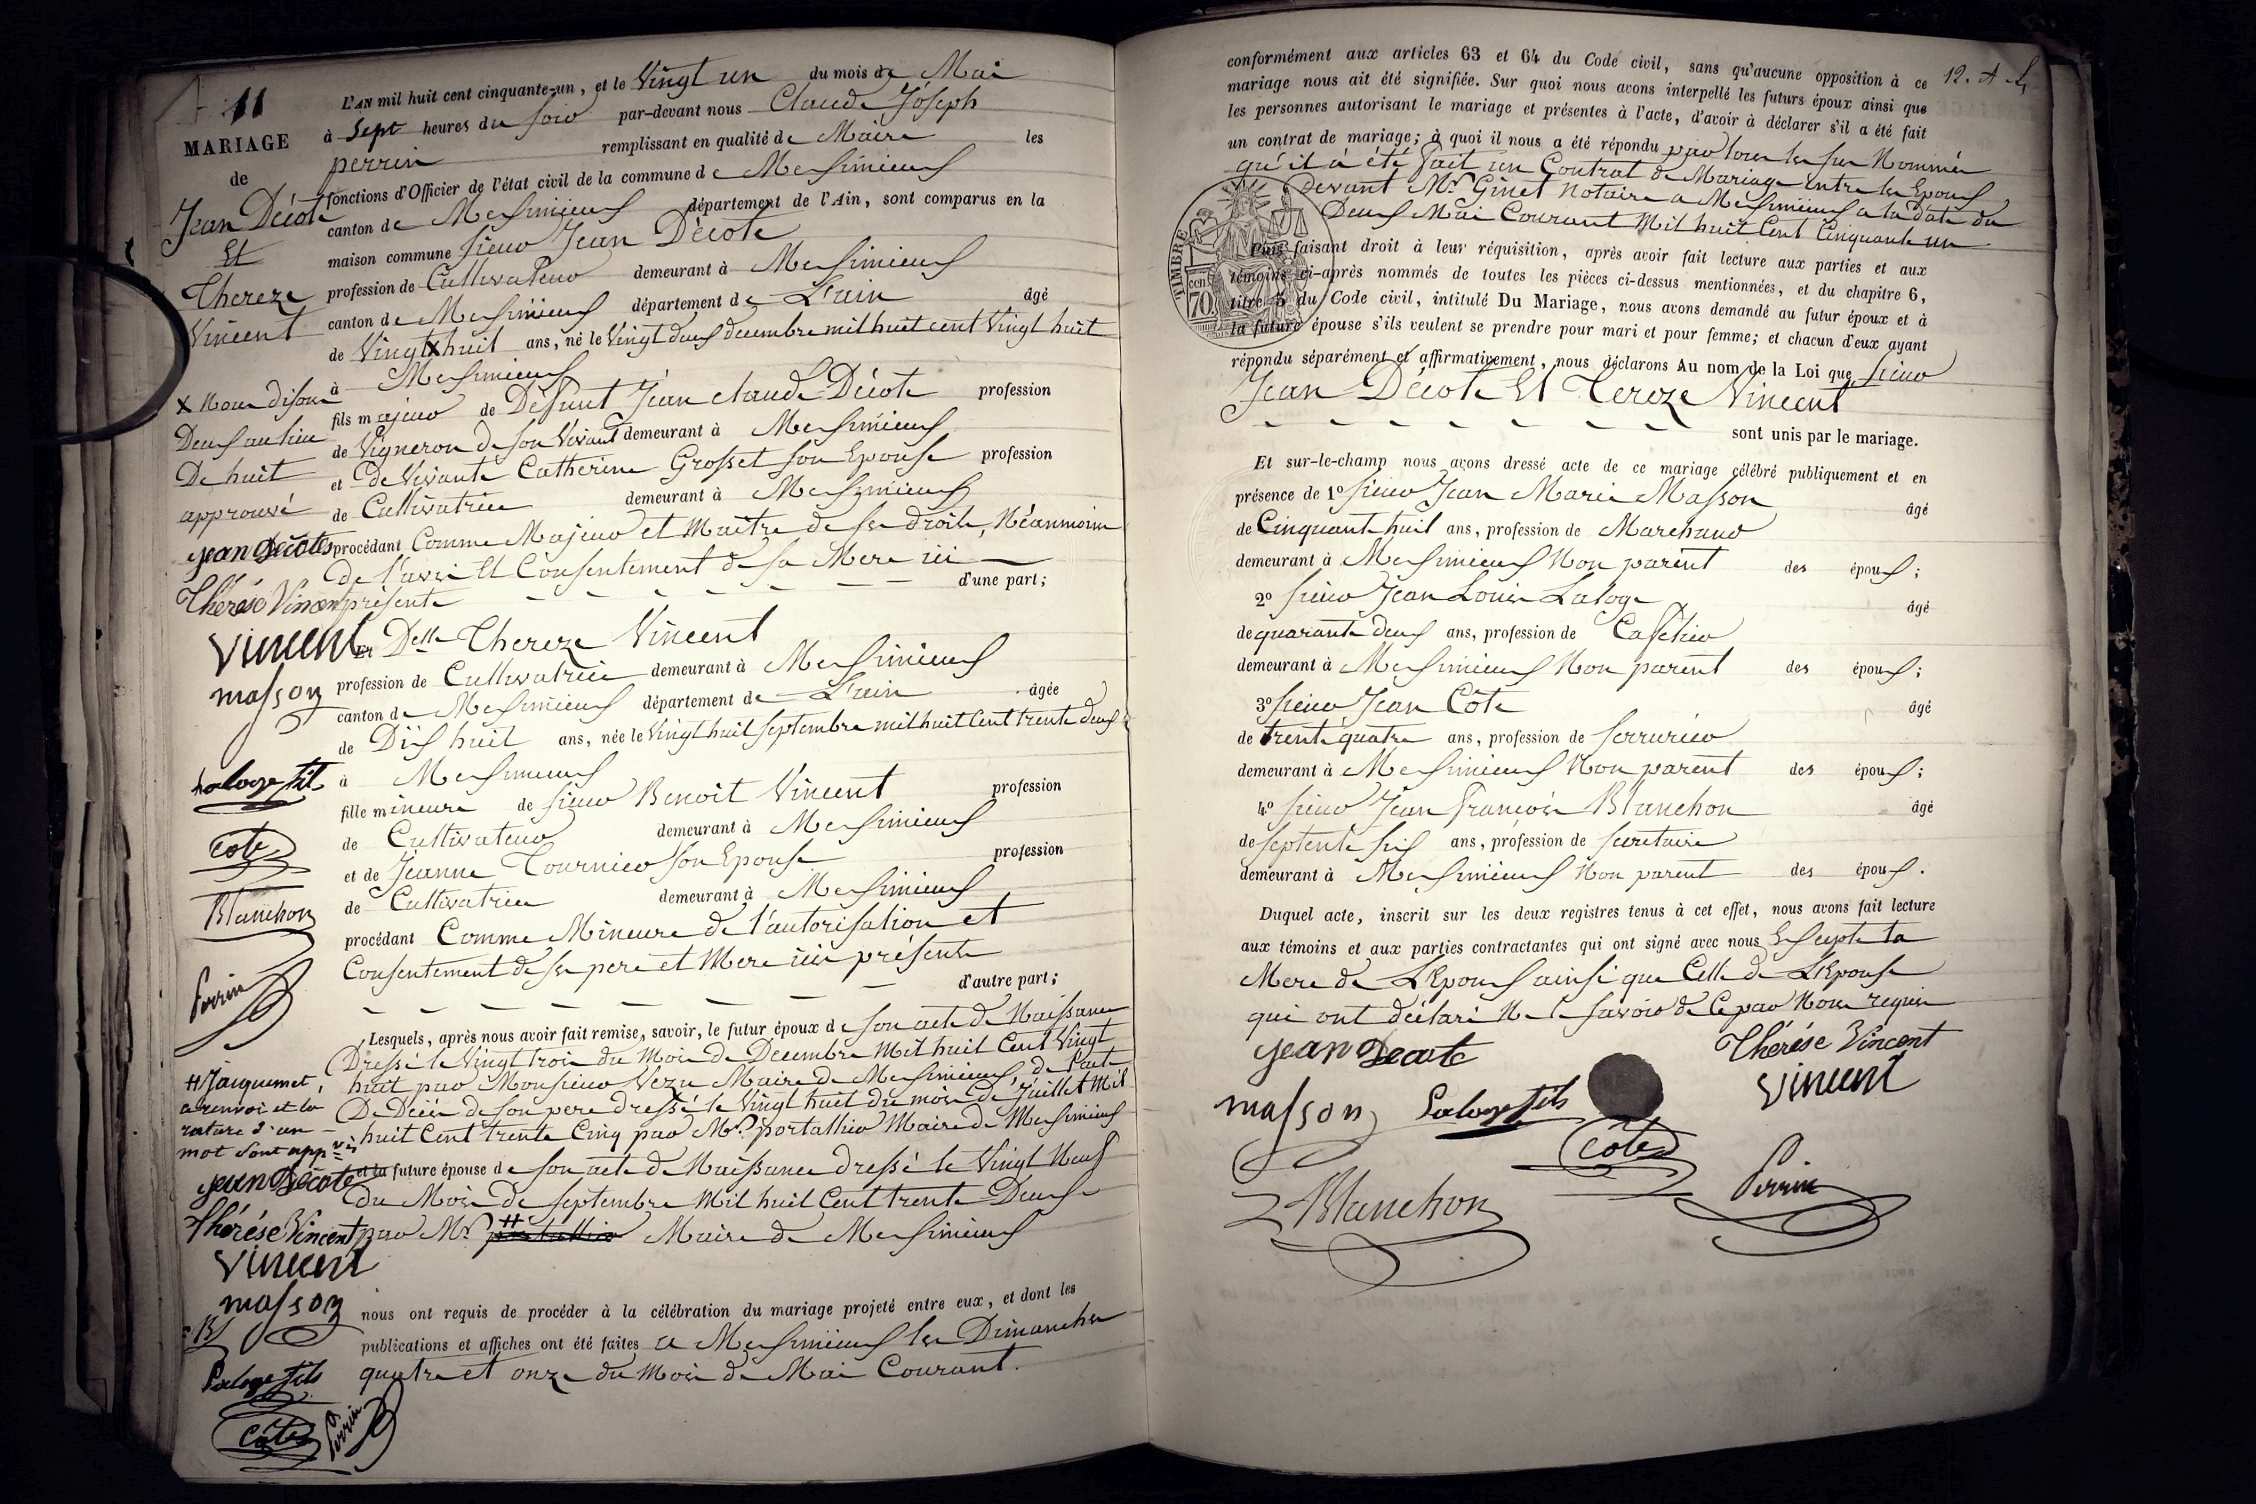 11
MARIAGE
de
Jean Décote
Et
Thereze
Vincent
L'AN mil huit cent cinquante-un, et le Vingt un du mois de Mai
à Sept heures du soir par-devant nous Claude Joseph
perrin remplissant en qualité de Maire les
fonctions d'Officier de l'état civil de la commune de Messimieux
canton de Messimieux département de l'Ain, sont comparus en la
maison commune sieur Jean Décote
profession de Cultivateur demeurant à Messimieux
canton de Messimieux département de L'ain âgé
de Vingt X huit ans, né le Vingt deux decembre mil huit cent Vingt huit
à Messimieux
fils majeur de Défunt Jean Claude Décote profession
de Vigneron de son Vivant demeurant à Messimieux
et de Vivante Catherine Grosset son Epouse profession
de Cultivatrice demeurant à Messimieux
procédant Comme Majeur et Maître de ses droits, Néanmoins
de l'avis Et Consentement de sa Mere ici
présente d'une part;
X Nous disons
Deux au lieu
De huit
approuvé
jean Décote
Thérése Vincent
Vincent
masson
Laloge fils
Côte
Blanchon
Perrin
et Delle Thereze Vincent
profession de Cultivatrice demeurant à Messimieux
canton de Messimieux département de L'ain âgée
de Dix huit ans, née le Vingt huit septembre mil huit Cent trente deux
à Messimieux
fille mineure de sieur Benoit Vincent profession
de Cultivateur demeurant à Messimieux
et de Jeanne Tournier son Epouse profession
de Cultivatrice demeurant à Messimieux
procédant Comme Mineure de l'autorisation et
Consentement de ses pere et Mere ici présents
d'autre part;
Lesquels, après nous avoir fait remise, savoir, le futur époux de son acte de Naissance
Dressé le Vingt trois du Mois de Décembre Mil huit Cent Vingt
huit par Monsieur Vezu Maire de Messimieux, de l'acte
De Décès de son pere dressé le Vingt huit du mois de Juillet Mil
huit Cent trente Cinq par Mr. portallier Maire de Messimieux
et la future épouse de son acte de Naissance dressé le Vingt Neuf
du Mois de septembre Mil huit Cent trente Deux
par Mr. # portallier Maire de Messimieux
# Jacquemet,
a renvoi et la
rature d'un
mot sont appvés
jean Décote
Thérése Vincent
Vincent
masson
B
Laloge fils
Côte
Perrin
nous ont requis de procéder à la célébration du mariage projeté entre eux, et dont les
publications et affiches ont été faites a Messimieux les Dimanches
quatre et onze du Mois de Mai Courant.
conformément aux articles 63 et 64 du Code civil, sans qu'aucune opposition à ce
mariage nous ait été signifiée. Sur quoi nous avons interpellé les futurs époux ainsi que
les personnes autorisant le mariage et présentes à l'acte, d'avoir à déclarer s'il a été fait
un contrat de mariage; à quoi il nous a été répondu par tous les sus Nommés
qu'il a été fait un Contrat de Mariage entre les Epoux
devant Mr. Ginet Notaire a Messimieux a la date du
Deux Mai Courant Mil huit Cent Cinquante un
TIMBRE
70
cent
Puis faisant droit à leur réquisition, après avoir fait lecture aux parties et aux
témoins ci-après nommés de toutes les pièces ci-dessus mentionnées, et du chapitre 6,
titre 5 du Code civil, intitulé Du Mariage, nous avons demandé au futur époux et à
la future épouse s'ils veulent se prendre pour mari et pour femme; et chacun d'eux ayant
répondu séparément et affirmativement, nous déclarons Au nom de la Loi que sieur
Jean Décote Et Tereze Vincent
sont unis par le mariage.
Et sur-le-champ nous avons dressé acte de ce mariage célébré publiquement et en
présence de 1º sieur Jean Marie Masson âgé
de Cinquante huit ans, profession de Marchand
demeurant à Messimieux Non parent des époux;
2º sieur Jean Louis Laloge âgé
de quarante deux ans, profession de Caffetier
demeurant à Messimieux Non parent des époux;
3º sieur Jean Côte âgé
de trente quatre ans, profession de serrurier
demeurant à Messimieux Non parent des époux;
4º sieur Jean François Blanchon âgé
de septente six ans, profession de secretaire
demeurant à Messimieux Non parent des époux.
Duquel acte, inscrit sur les deux registres tenus à cet effet, nous avons fait lecture
aux témoins et aux parties contractantes qui ont signé avec nous Excepté la
Mere de L'Epoux ainsi que Celle de L'Epouse
qui ont déclaré Ne le savoir de Ce par Nous requis
jean Decote
Thérése Vincent
Vincent
masson
Laloge fils
Côte
Blanchon
Perrin